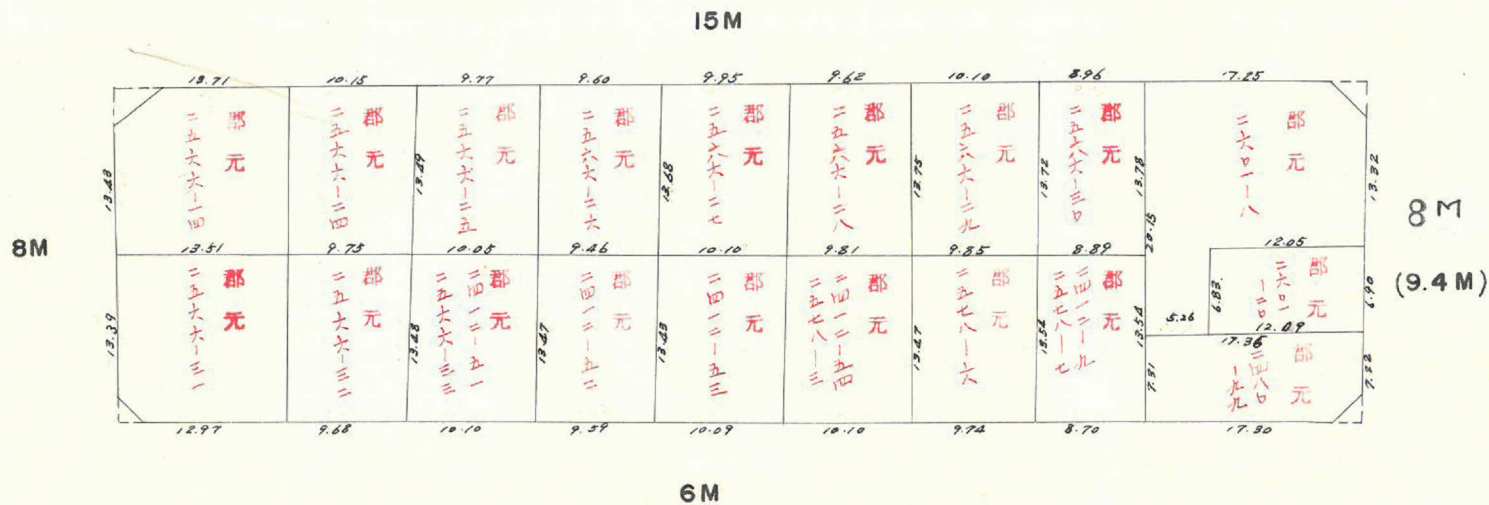 15M
13.71
10.15
9.77
9.60
9.95
9.62
10.10
8.96
17.25
郡元
二五六六-一四
郡元
二五六六-二四
郡元
二五六六-二五
郡元
二五六六-二六
郡元
二五六六-二七
郡元
二五六六-二八
郡元
二五六六-二九
郡元
二五六六-三〇
郡元
二六〇一-八
13.43
13.49
13.68
13.75
13.72
13.78
20.15
13.32
8M
8M
(9.4M)
13.51
9.75
10.05
9.46
10.10
9.81
9.85
8.89
12.05
郡元
二五六六-三一
郡元
二五六六-三二
郡元
二四一二-五一
二五六六-三三
郡元
二四一二-五二
郡元
二四一二-五三
郡元
二四一二-五四
二五七八-三
郡元
二五七八-六
郡元
二四一二-九
二五七八-七
郡元
二六〇一
-二〇
13.39
13.48
13.47
13.43
13.47
13.54
13.54
5.26
6.83
6.90
12.09
17.36
7.31
郡元
二四八〇
-九九
7.32
12.97
9.68
10.10
9.59
10.09
10.10
9.74
8.70
17.30
6M